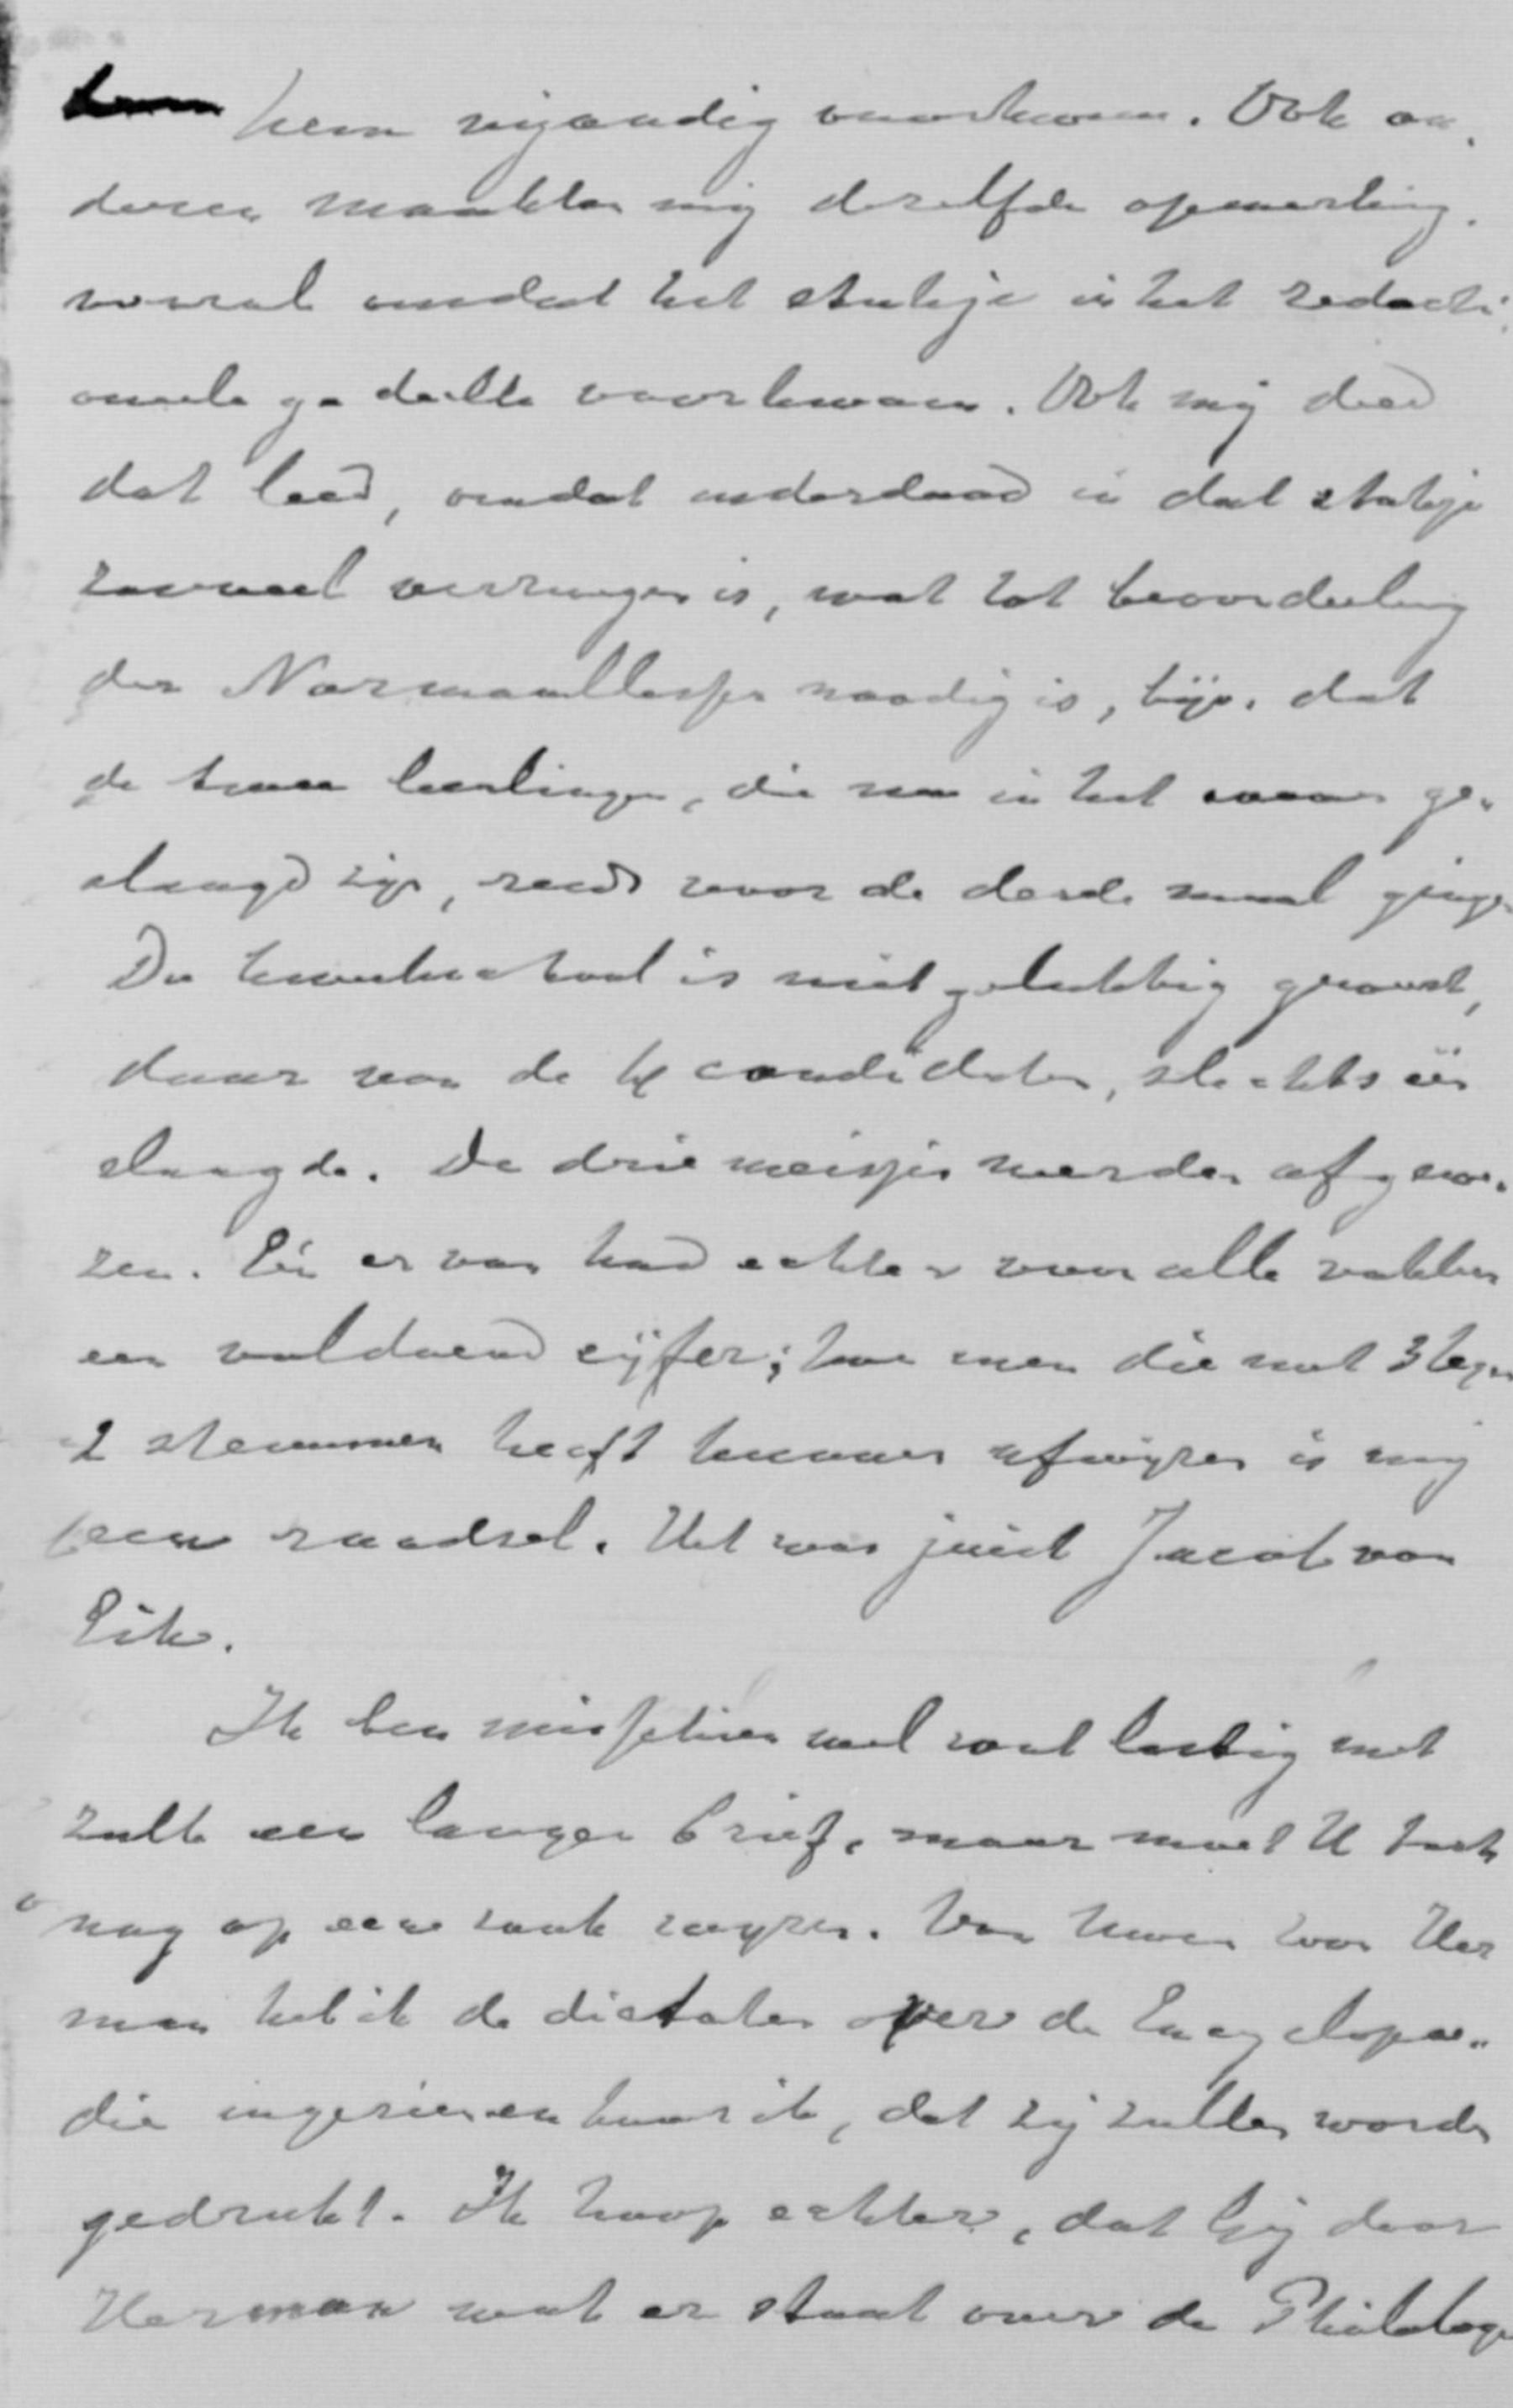 hem vijandig voorkwam. Ook an-
deren maakten mij dezelfde opmerking.
vooral omdat het stukje in het redacti-
oneele gedeelte voorkwam. Ook mij deed
dat leed, omdat inderdaad in dat stukje
zooveel verzwegen is, wat tot beoordeeling
der Normaallessen noodig is, bijv. dat
de twee leerlingen, die nu in het geslaagd
zijn, reeds voor de derde maal gingen
De kweekschool is niet gelukkig geweest,
daar van de 4 candidaten, slechts één
slaagde. De drie meisjes werden afgewe-
zen. Eén er van had echter voor alle vakken
een voldoend cijfer; hoe men die met 3 tegen
2 stemmen heeft kunnen afwijzen is mij
een raadsel. Het was juist Jacoba van
Eik.
Ik ben misschien wel wat lastig met
zulk een langen brief, maar moet U toch
nog op eene zaak wijzen. Van Uwen zoon Her
man heb ik de dictaten over de Encyclopae-
die ingezien en hoor ik, dat zij zullen worden
gedrukt. Ik hoop echter, dat Gij door
Herman wat er staat over de Philologie